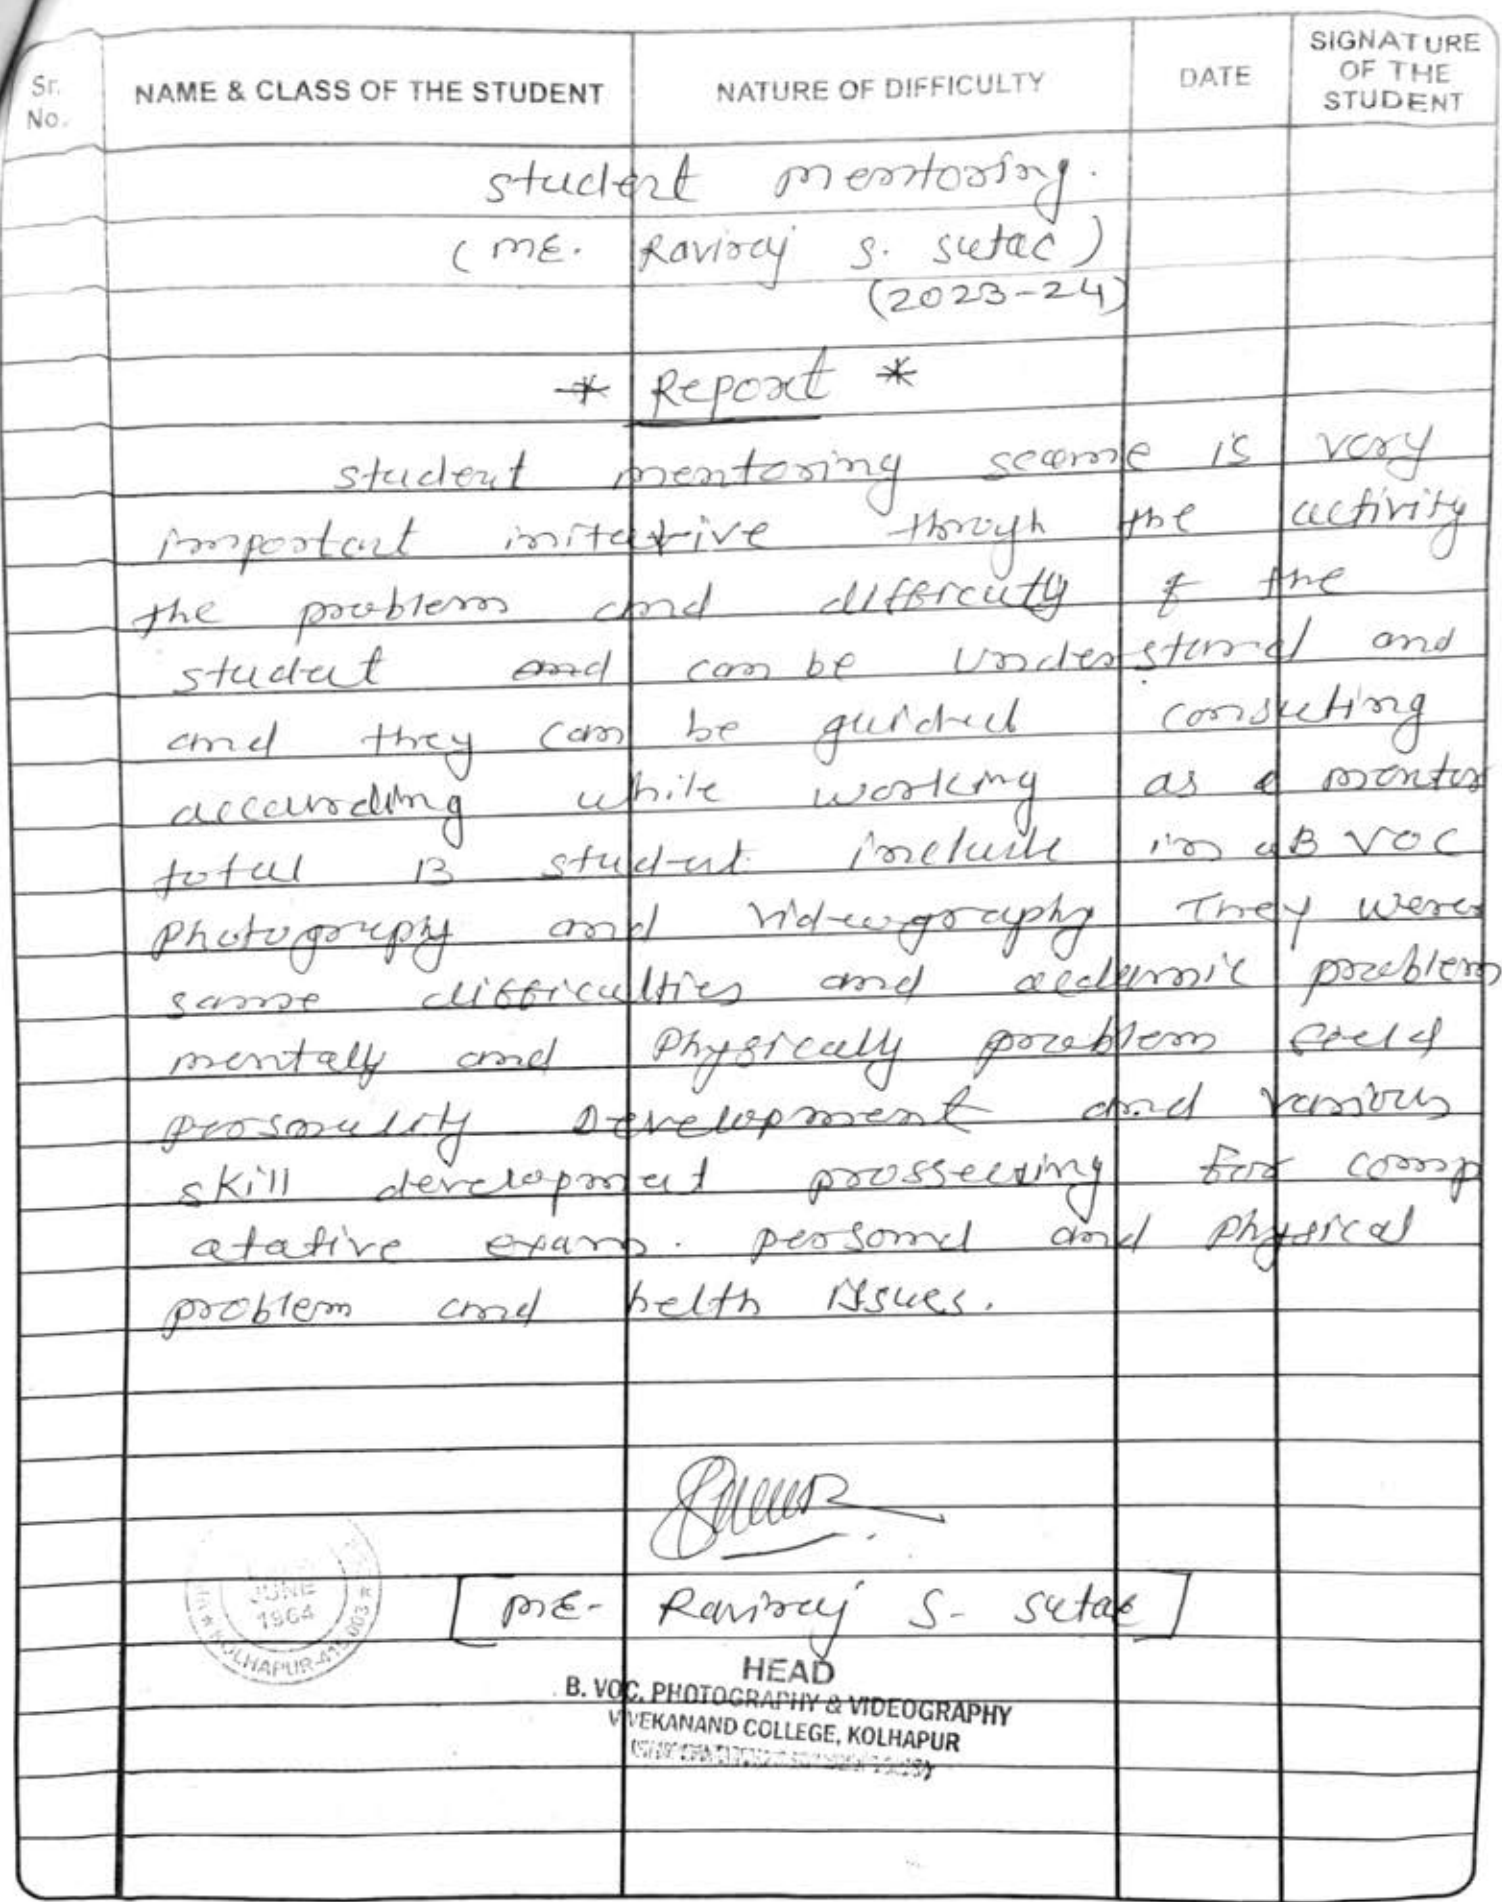 Sr. No.
NAME & CLASS OF THE STUDENT
NATURE OF DIFFICULTY
DATE
SIGNATURE OF THE STUDENT
student mentoring.
(ME. Raviraj S. Sutar)
(2023-24)
* Report *
student mentoring sceme is very
important initative throgh the activity
the problem and difficuty of the
student and can be understand and
and they can be guided consulting
accaurding while working as a mentor
total 13 student include in a B VOC
photography and videography They were
same difficulties and acdamic problem
mentally and physically problem
personality Development and various
skill development prosseering for comp
atative exam. personal and physical
problem and helth issues.
[ME- Raviraj S- Sutar]
JUNE
1964
KOLHAPUR
HEAD
B. VOC. PHOTOGRAPHY & VIDEOGRAPHY
VIVEKANAND COLLEGE, KOLHAPUR